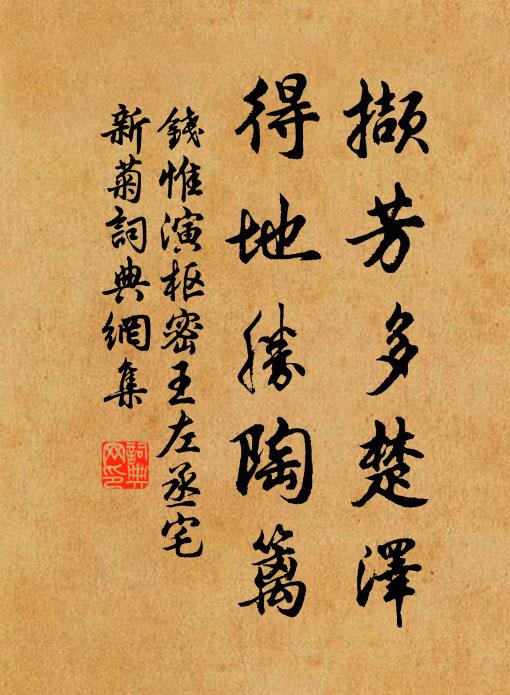 擷芳多楚澤
得地勝陶籬
錢惟演枢密王左丞宅
新菊詞典網集
詞典网印